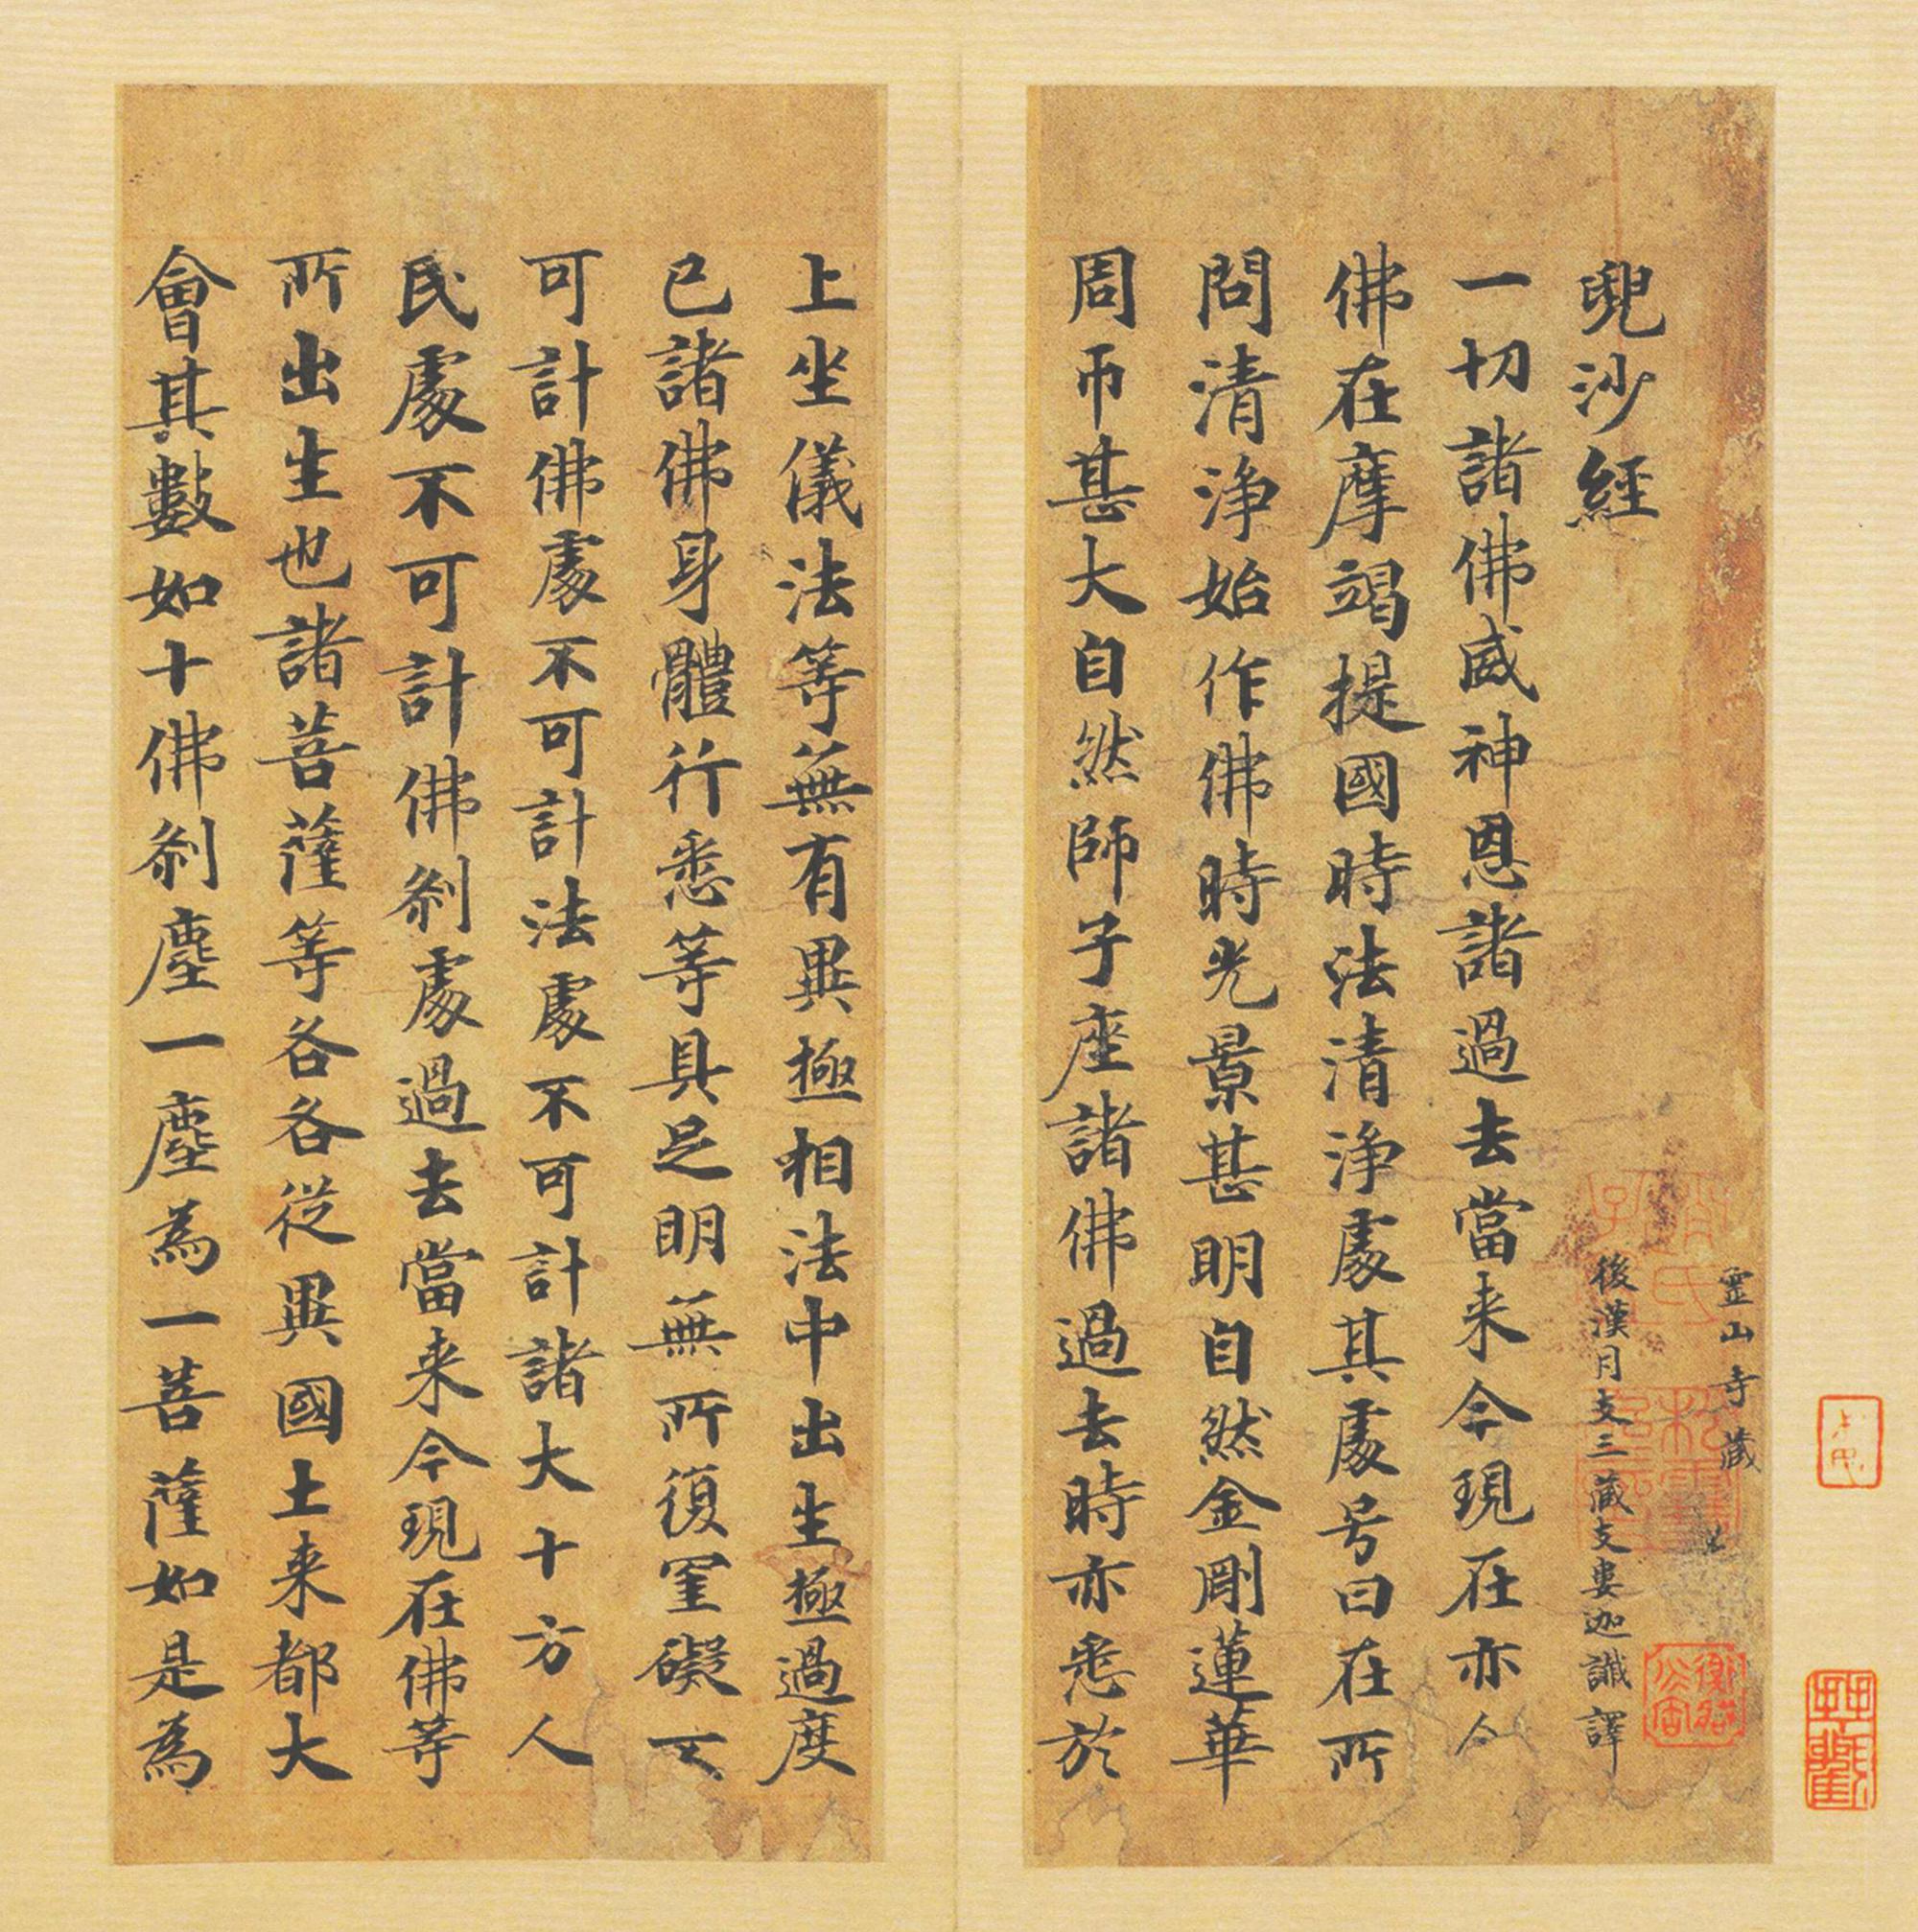 靈山寺藏
兜沙經
後漢月支三藏支婁迦讖譯
一切諸佛威神恩諸過去當来今現在亦令
佛在摩竭提國時法清浄處其處号曰在所
問清浄始作佛時光景甚明自然金剛蓮華
周帀甚大自然師子座諸佛過去時亦悉於
上坐儀法等無有異極相法中出生極過度
已諸佛身體行悉等具足明無所復罣礙不
可計佛處不可計法處不可計諸大十方人
民處不可計佛刹處過去當来今現在佛等
所出生也諸菩薩等各各従異國土来都大
會其數如十佛刹塵一塵為一菩薩如是為